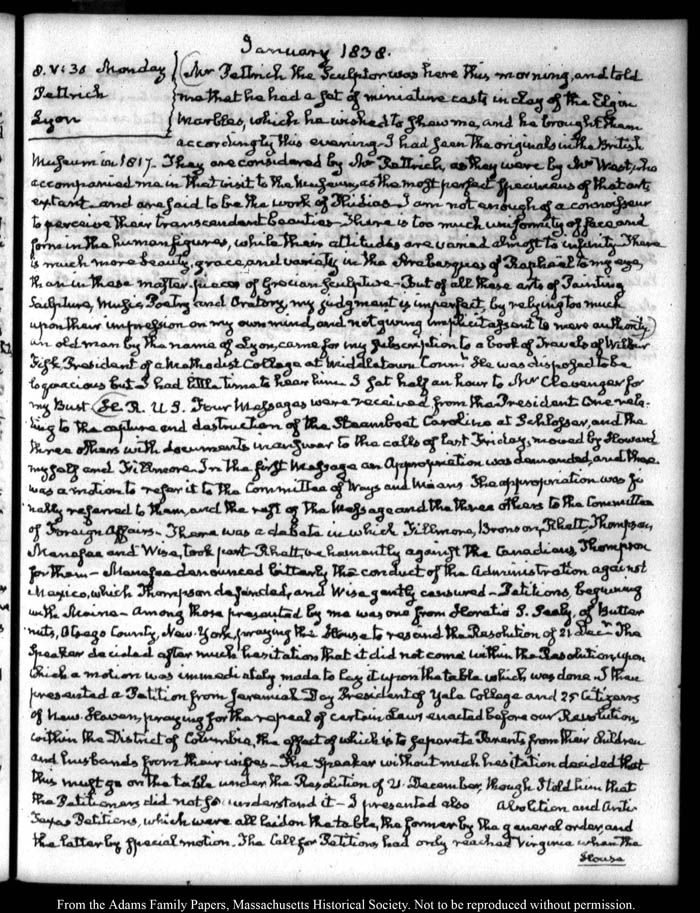 January 1838.
8. V:30 Monday
Pettrich
Lyon
(Mr Pettrich the Sculptor was here this morning, and told
me that he had a set of miniature casts in clay of the Elgin
Marbles, which he wished to show me, and he brought them
accordingly this evening. I had seen the originals in the British
Museum in 1817. They are considered by Mr Pettrich, as they were by Mr West, who
accompanied me in that visit to the Museum, as the most perfect specimens of that art
extant—and are said to be the work of Phidias—I am not enough of a connoisseur
to perceive their transcendent beauties—There is too much uniformity of face and
form in the human figures, while their attitudes are varied almost to infinity. There
is much more beauty, grace, and variety in the Arabesques of Raphael to my eye,
than in these master-pieces of Grecian Sculpture—But of all these arts of Painting
Sculpture, Music, Poetry and Oratory, my judgment is imperfect, by relying too much
upon their impression on my own mind, and not giving implicit assent to mere authority)
an old man by the name of Lyon, came for my subscription to a book of Travels of Wilbur
Fisk, President of a Methodist College at Middletown Connt. He was disposed to be
loquacious but I had little time to hear him. I sat half an hour to Mr Clevenger for
my Bust (H. R. U S. Four Messages were received from the President One rela-
ting to the capture and destruction of the Steamboat Caroline at Schlosser, and the
three others with documents in answer to the calls of last Friday, moved by Howard
myself and Fillmore. In the first Message an Appropriation was demanded, and there
was a motion to refer it to the Committee of Ways and Means The appropriation was fi-
nally referred to them, and the rest of the Message and the three others to the Committee
of Foreign Affairs. There was a debate in which Fillmore, Bronson, Rhett, Thompson,
Menefee and Wise, took part. Rhett, vehemently against the Canadians, Thompson
for them—Menefee denounced bitterly the conduct of the Administration against
Mexico, which Thompson defended, and Wise gently censured—Petitions, beginning
with Maine—Among those presented by me was one from Horatio S. Seely, of Butter
nuts, Otsego County, New-York, praying this House to rescind the Resolution of 21 Decr. The
Speaker decided after much hesitation that it did not come within the Resolution, upon
which a motion was immediately made to lay it upon the table which was done. I then
presented a Petition from Jeremiah Day President of Yale College and 25 Citizens
of New-Haven, praying for the repeal of certain Laws enacted before our Revolution,
within the District of Columbia, the effect of which is to separate Parents from their Children
and husbands from their wives—The Speaker without much hesitation decided that
this must go on the table under the Resolution of 21. December, though I told him that
the Petitioners did not so understand it—I presented also Abolition and Anti-
Texas Petitions, which were all laid on the table, the former by the general order, and
the latter by special motion. The Call for Petitions had only reached Virginia when the
House
From the Adams Family Papers, Massachusetts Historical Society. Not to be reproduced without permission.